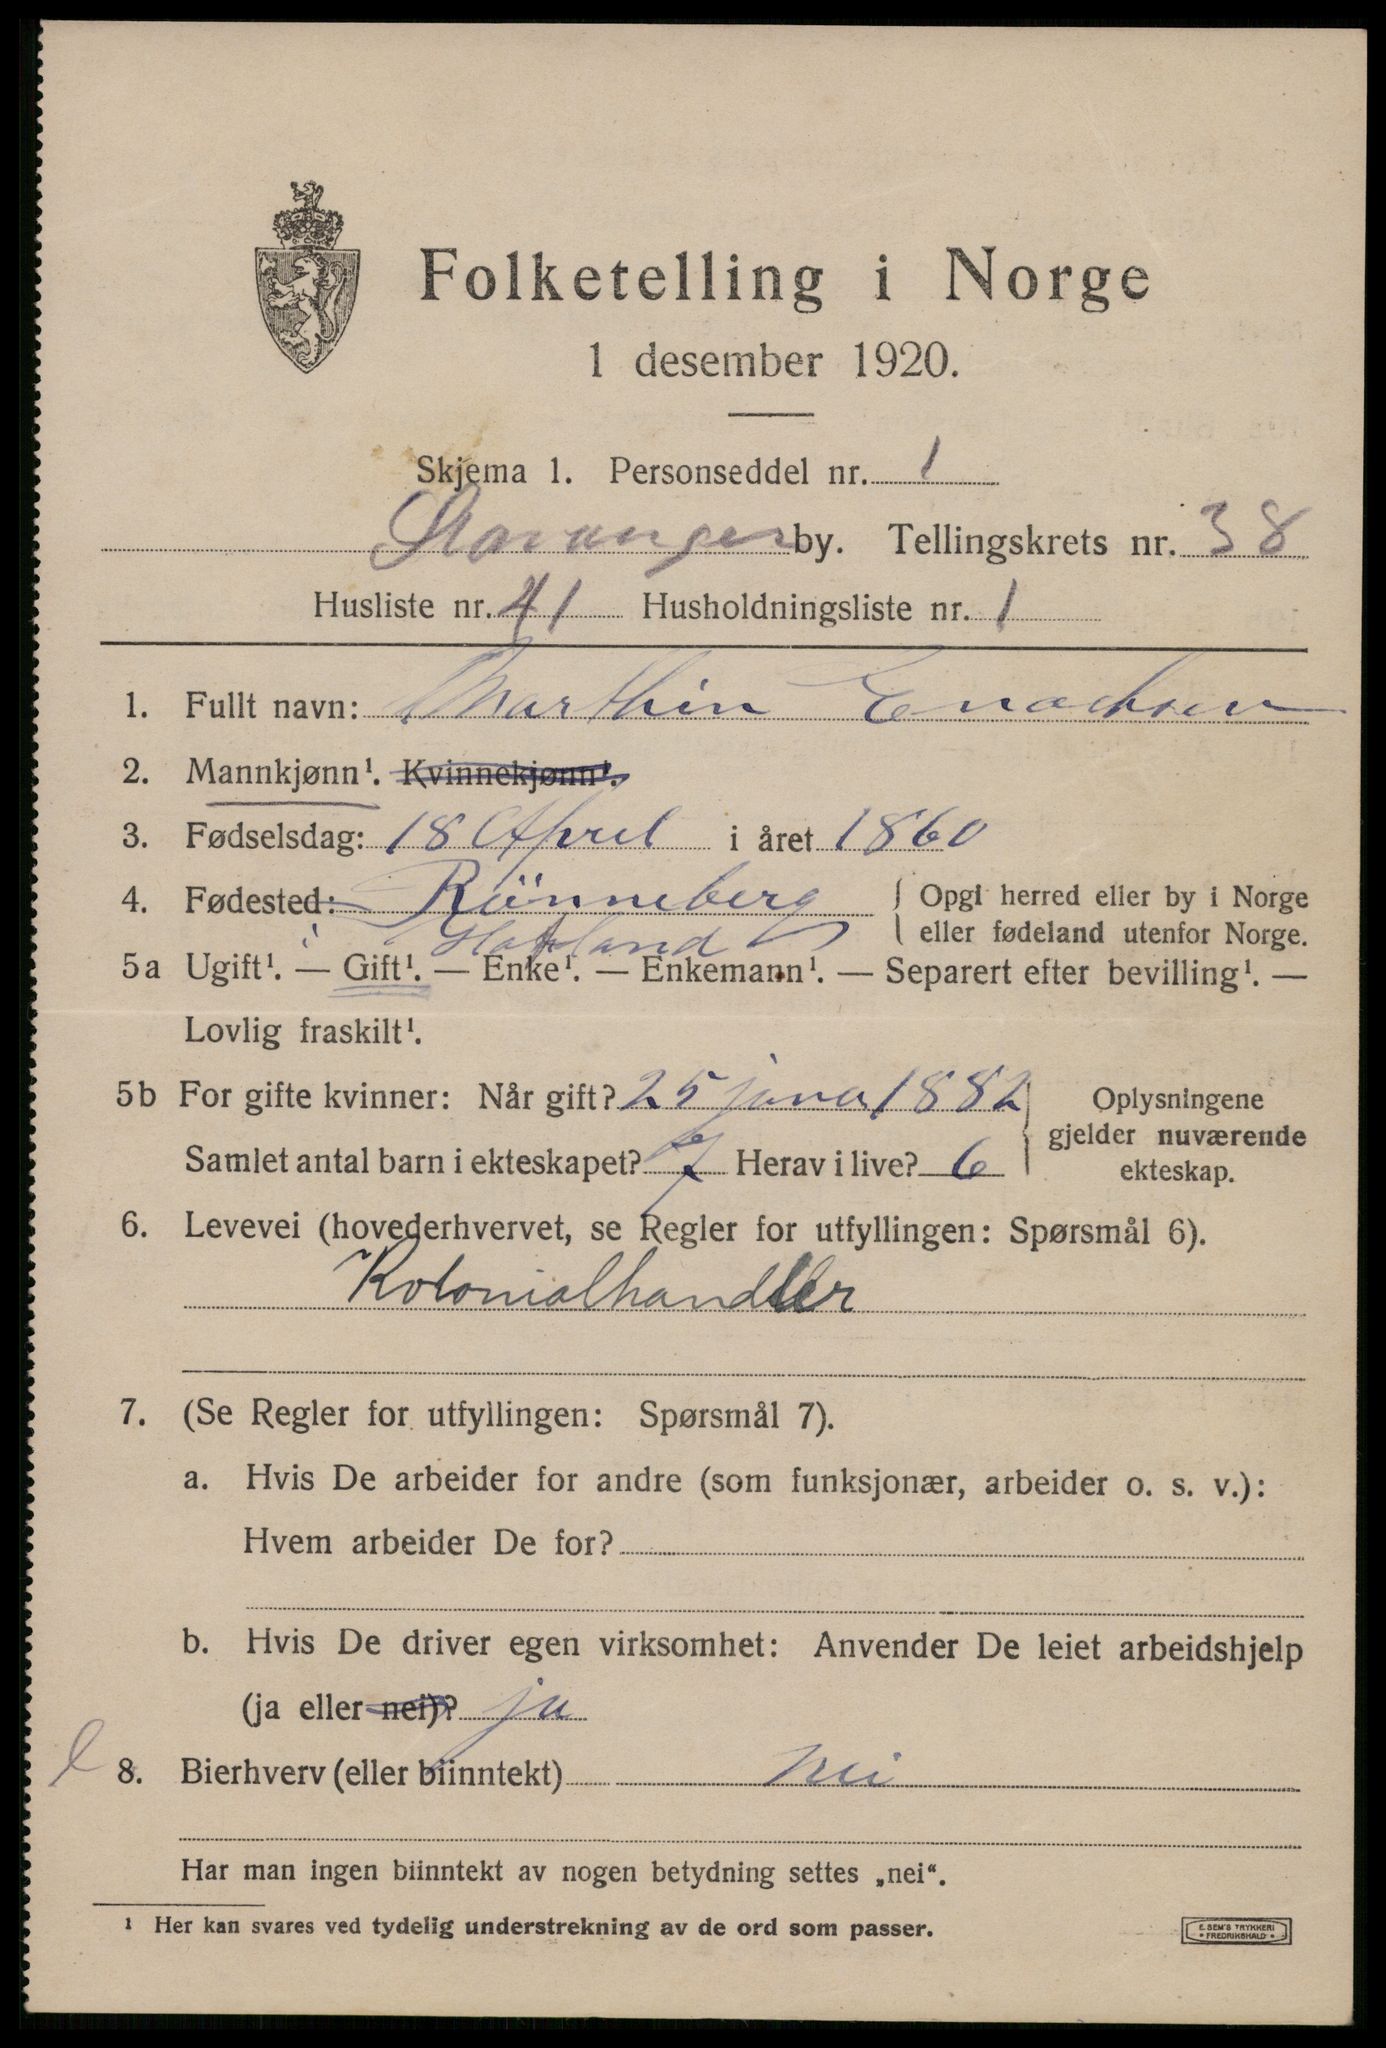 Folketelling i Norge
1 desember 1920.
Skjema 1. Personseddel nr. 1
Stavanger by. Tellingskrets nr. 38
Husliste nr. 41 Husholdningsliste nr. 1
1. Fullt navn: Marthin Enochsen
2. Mannkjønn¹. Kvinnekjønn¹.
3. Fødselsdag: 18 April i året 1860
4. Fødested: Rönneberg { Opgi herred eller by i Norge
i Halland eller fødeland utenfor Norge.
5a Ugift¹. — Gift¹. — Enke¹. — Enkemann¹. — Separert efter bevilling¹. —
Lovlig fraskilt¹.
5b For gifte kvinner: Når gift? 25 1882 Oplysningene
gjelder nuværende
Samlet antal barn i ekteskapet? 7 Herav i live? 6 ekteskap.
6. Levevei (hovederhvervet, se Regler for utfyllingen: Spørsmål 6).
Kolonialhandler
7. (Se Regler for utfyllingen: Spørsmål 7).
a. Hvis De arbeider for andre (som funksjonær, arbeider o. s. v.):
Hvem arbeider De for?
b. Hvis De driver egen virksomhet: Anvender De leiet arbeidshjelp
(ja eller nei)? ja
8. Bierhverv (eller biinntekt) nei
Har man ingen biinntekt av nogen betydning settes „nei“.
¹ Her kan svares ved tydelig understrekning av de ord som passer.
E. SEM'S TRYKKERI
• FREDRIKSHALD •